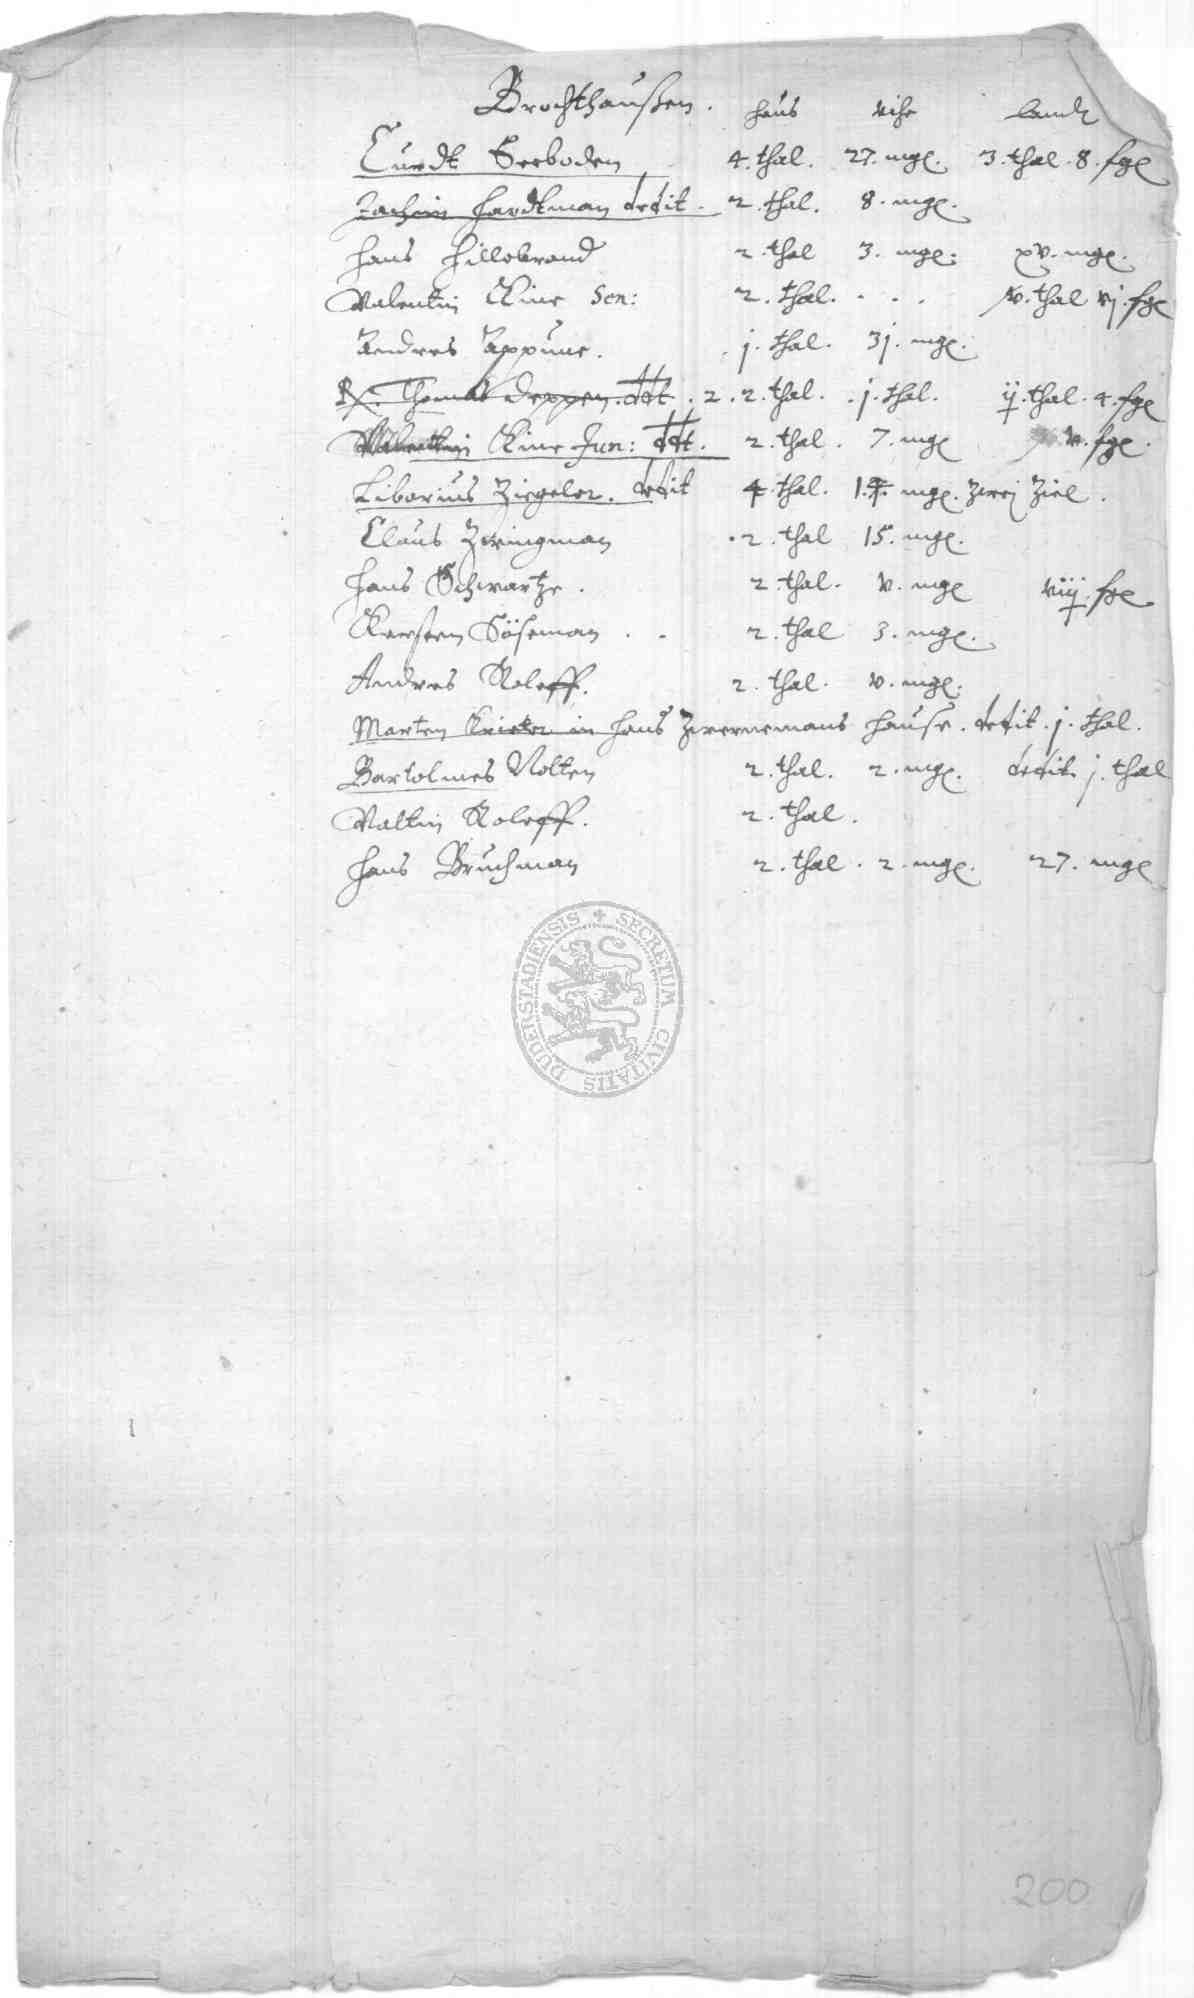 Brochthaußen. haus vihe landt
Curdt Seeboden 4. thal. 27. mgl. 3. thal. 8. fgl
Jachim Hardtman dedit. 2. thal. 8. mgl.
Hans Hillebrand 2. thal 3. mgl. xv. mgl.
Valentin Kine Sen: 2. thal. . . . thal vj. fgl
Andres j. thal. 3j. mgl.
Thomas Deppen. ddt. 2. 2. thal. . j. thal. ij. thal. 4. fgl
Valentin Kine Jun: ddt. 2. thal. 7. mgl v. fgl.
Liborius Ziegeler. dedit 4. thal. mgl. Zwej Ziel.
Claus Zwingman . 2. thal 15. mgl.
Hans Schwartze. 2. thal. v. mgl viij. fgl
Kersten Söseman . . 2. thal 3. mgl.
Andres Roleff. 2. thal. v. mgl.
Marten Kricker in Hans Zwernemans Hause. dedit. j. thal.
Bartolmes Nolten 2. thal. 2. mgl. dedit j. thal
Valtin Roleff. 2. thal.
Hans Bruchman 2. thal. 2. mgl. 27. mgl
SECRETUM CIVITATIS DUDERSTADIENSIS
200